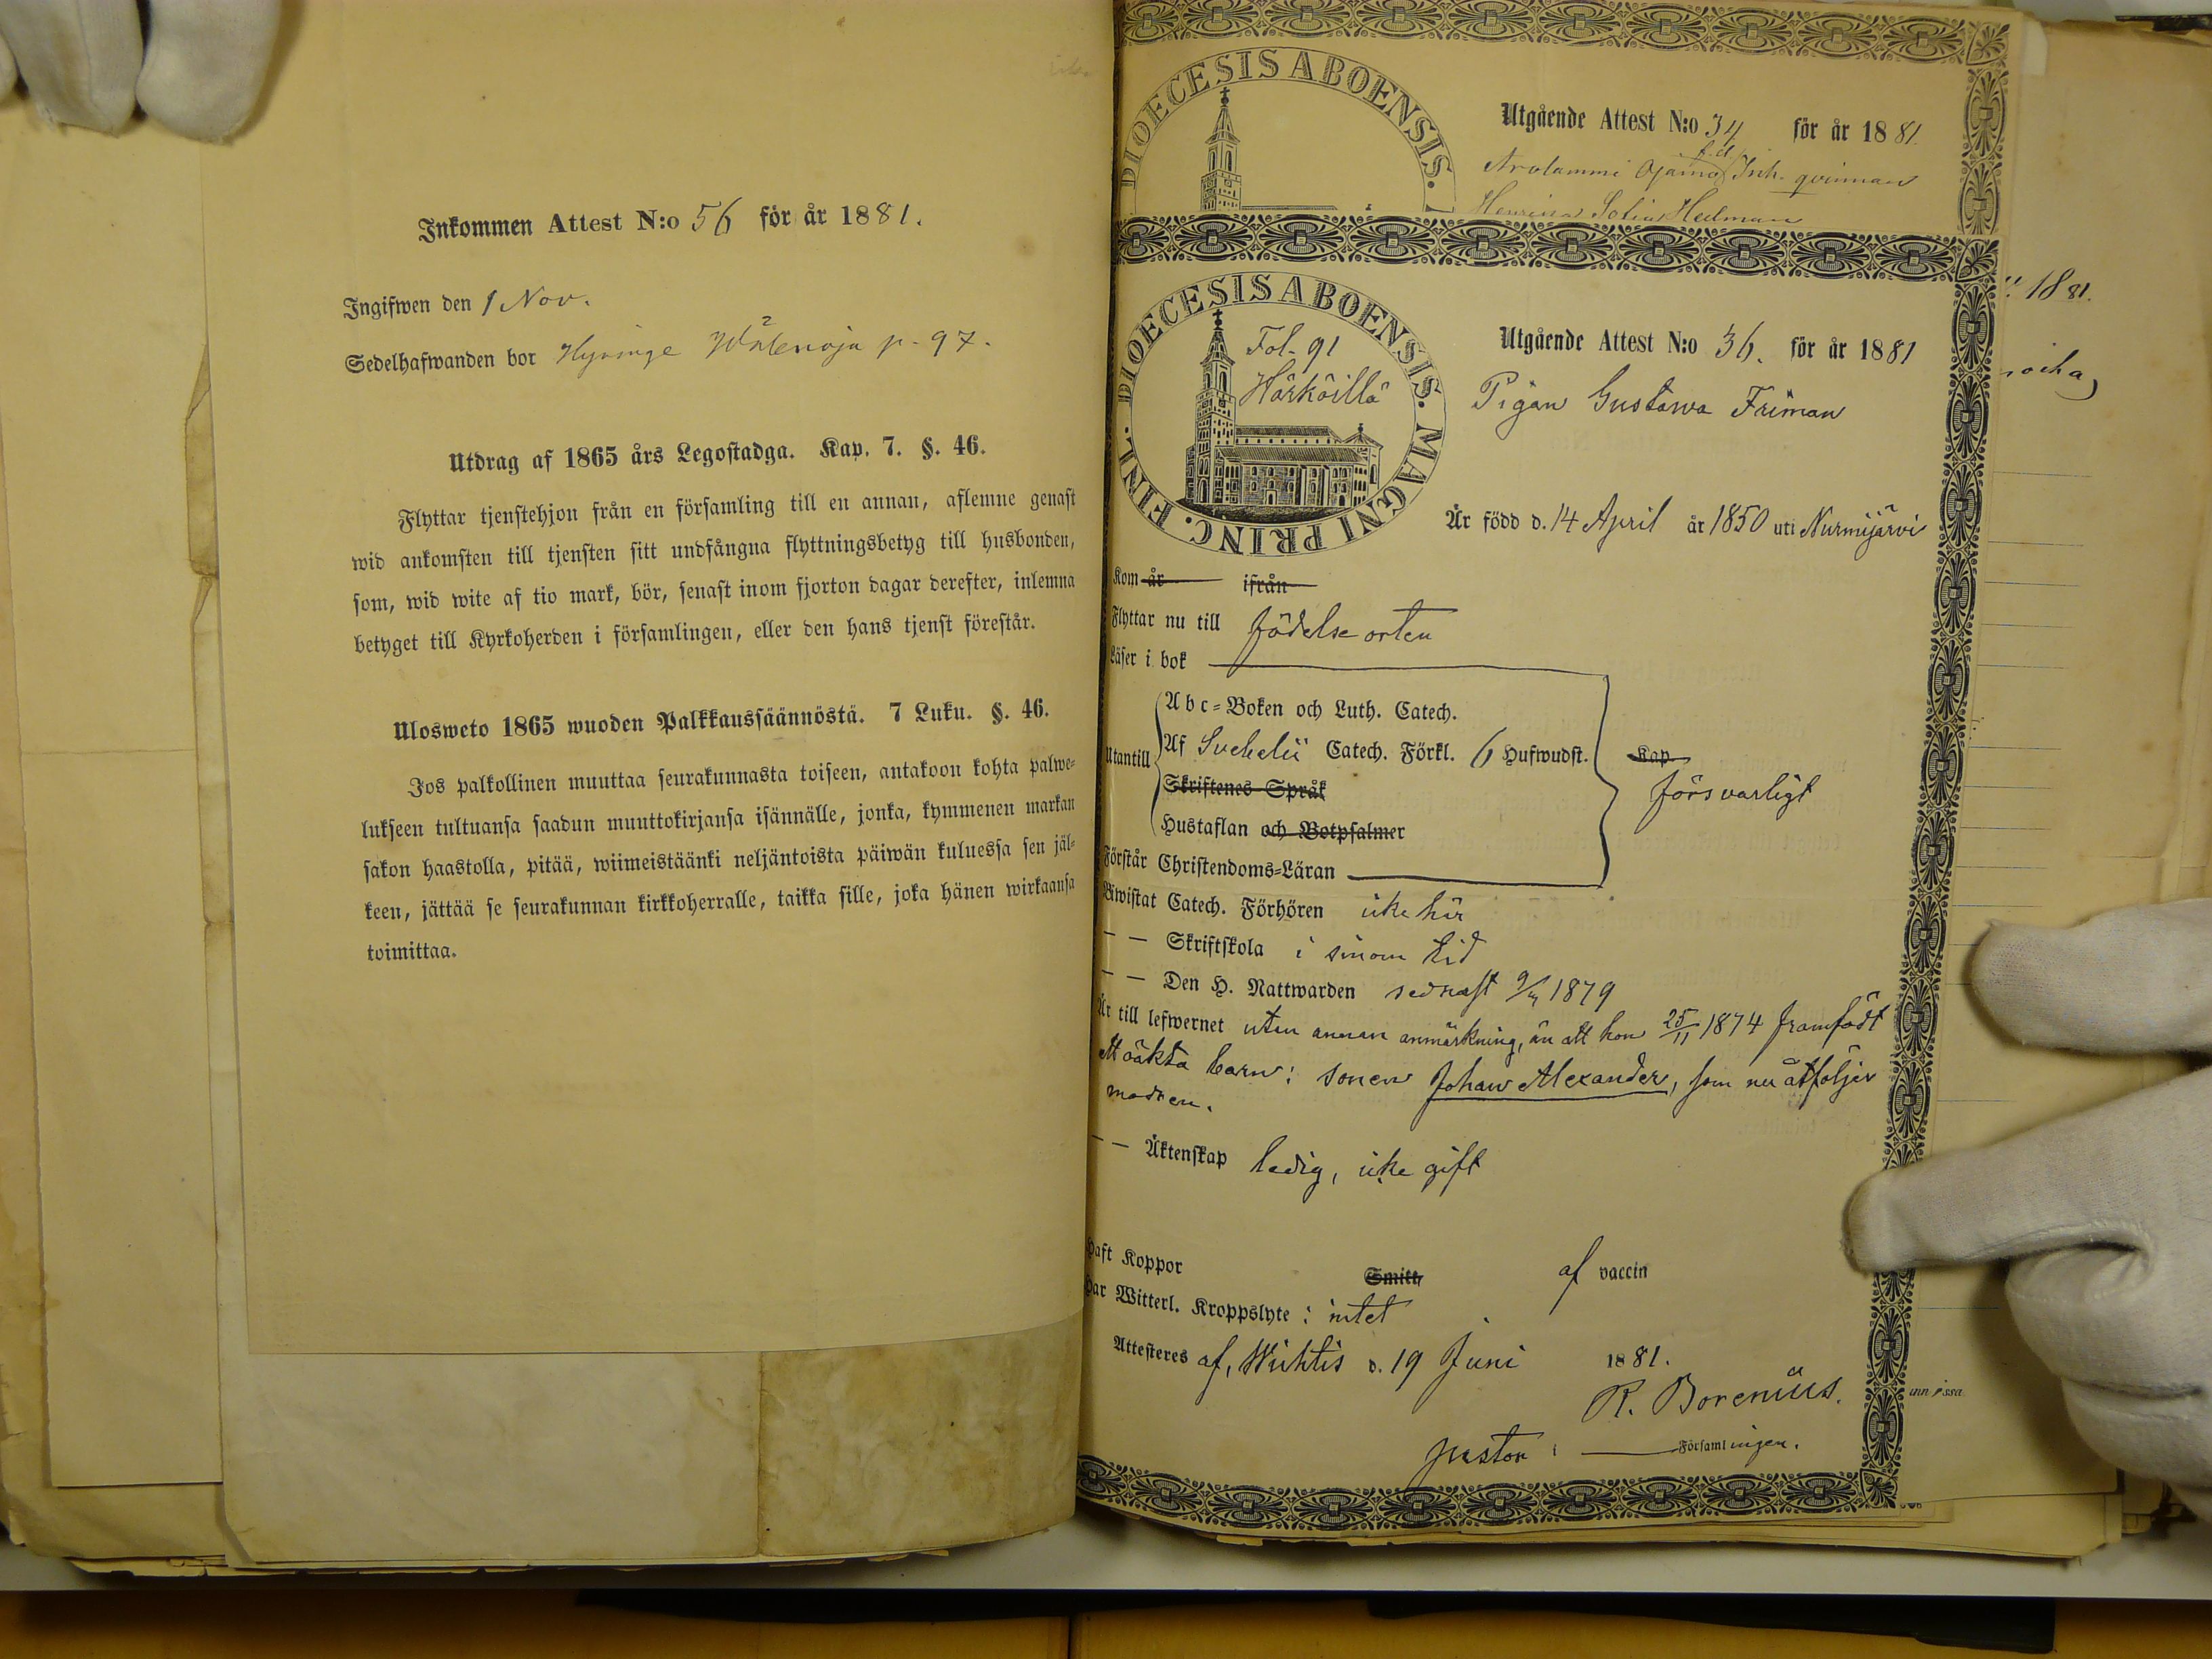 Inkommen Attest N:o 56 för år 1881.
Ingifwen den 1 Nov.
Sedelhafwanden bor Hyvinge p. 97.
Utdrag af 1865 års Legostadga. Kap. 7. §. 46.
Flyttar tjenstehjon från en församling till en annan, aflemne genast
wid ankomsten till tjensten sitt undfångna flyttningsbetyg till husbonden,
som, wid wite af tio mark, bör, senast inom fjorton dagar derefter, inlemna
betyget till Kyrkoherden i församlingen, eller den hans tjenst förestår.
Ulosweto 1865 wuoden Palkkaussäännöstä. 7 Luku. §. 46.
Jos palkollinen muuttaa seurakunnasta toiseen, antakoon kohta palwe-
lukseen tultuansa saadun muuttokirjansa isännälle, jonka, kymmenen markan
sakon haastolla, pitää, wiimeistäänki neljäntoista päiwän kuluessa sen jäl-
keen, jättää se seurakunnan kirkkoherralle, taikka sille, joka hänen wirkaansa
toimittaa.
DIOECESIS ABOENSIS.
Utgående Attest N:o 34 för år 1881.
f.d.
Arolammi Ojamo Inh. qvinnan
Henrica Sofia Hedman
DIOECESIS ABOENSIS. MAGNI PRINC. FINL.
Fol. 91
Härköilä
Utgående Attest N:o 36. för år 1881
Pigan Gustawa Friman
Är född d. 14 April år 1850 uti Nurmijärvi
Kom år ifrån
Flyttar nu till födelse orten
Läser i bok
Utantill
Abc-Boken och Luth. Catech.
Af Svebelii Catech. Förkl. 6 Hufwudst.
Skriftenes Språk
Hustaflan och Botpsalmer
Kap
försvarligt
Förstår Christendoms-Läran
Biwistat Catech. Förhören icke här
— — Skriftskola i sinom tid
— — Den H. Nattwarden sednast 1879
Är till lefwernet utan annan anmärkning, än att hon 25/11 1874 framfödt
ett oäkta barn: sonen Johan Alexander, som nu åtföljer
modren.
— — Äktenskap ledig, icke gift
Haft Koppor Smitt af vaccin
Har Witterl. Kroppslyte: intet
Attesteres af, Wichtis d. 19 Juni 1881.
R. Borenius.
pastor i Församlingen.
1881.